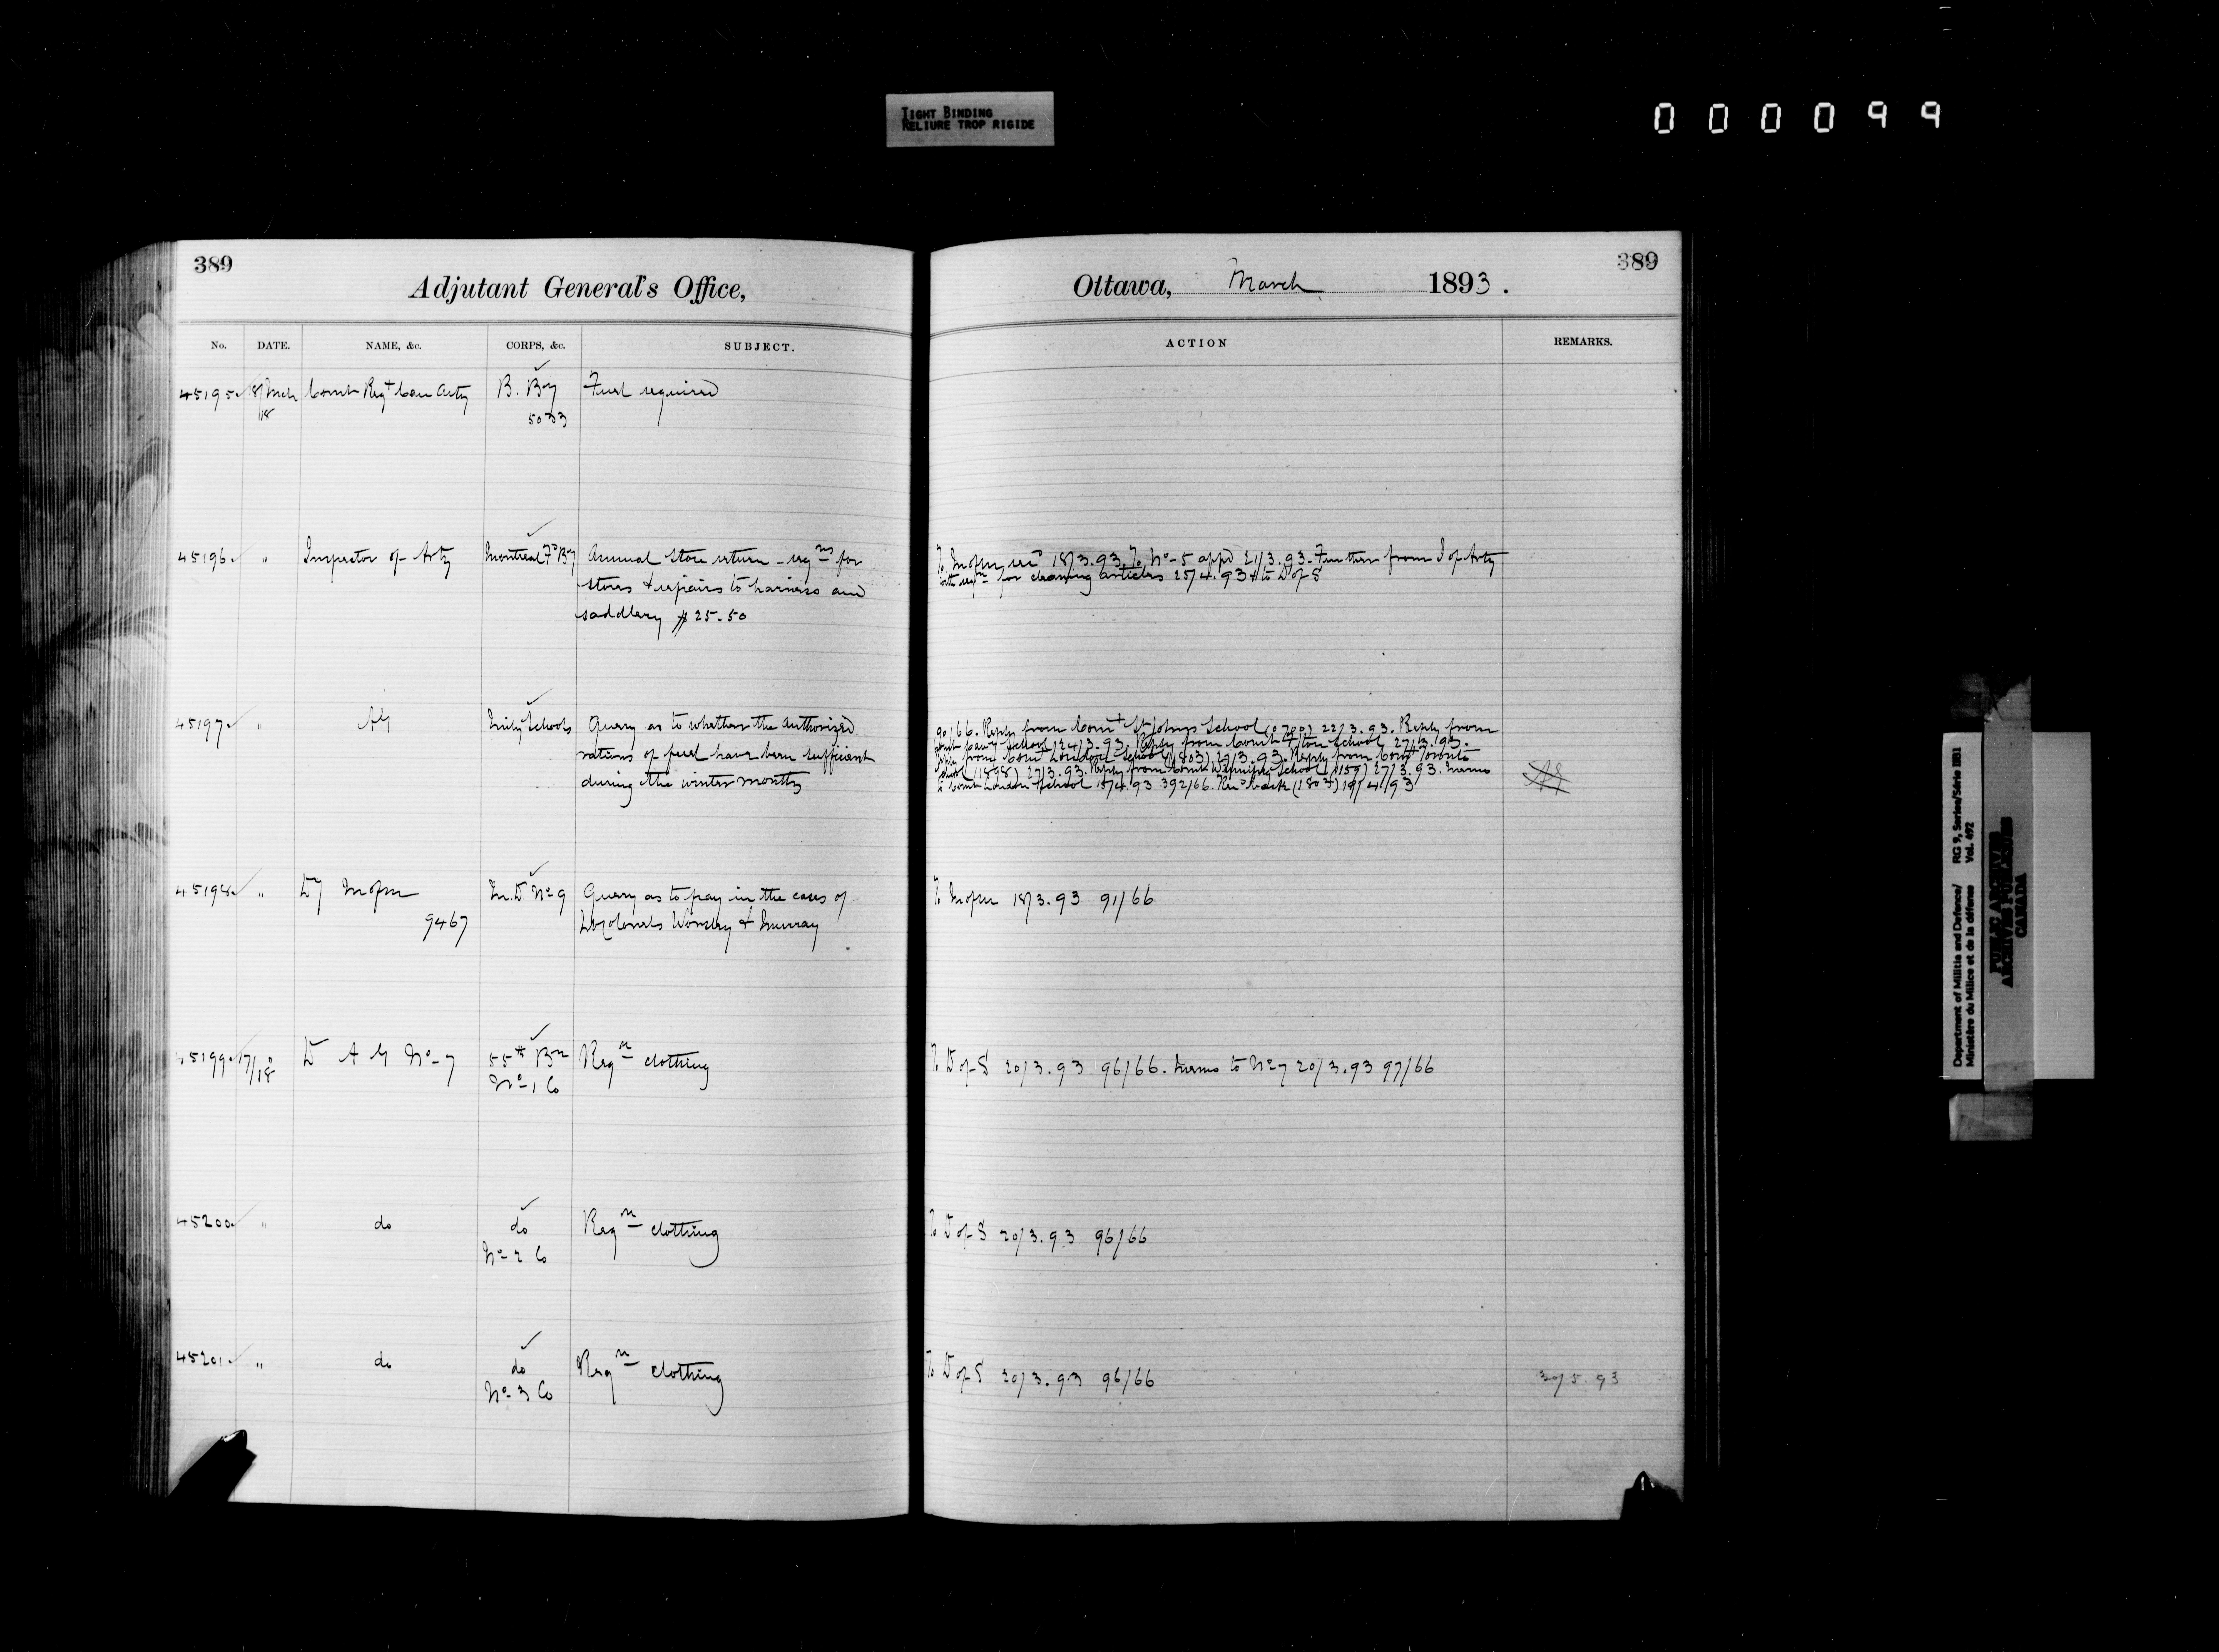 TIGHT BINDING
RELIURE TROP RIGIDE
000099
389
Adjutant General's Office,
No. DATE. NAME, &c. CORPS, &c. SUBJECT.
45195 18/Mch Comt Regt Can Arty B. By Fuel required
/18 5033
45196 " Inspector of Arty Montreal Fd By Annual Store return - reqns for
stores & repairs to harness and
saddlery $25.50
45197 " AG Mily Schools Query as to whether the authorized
rations of fuel have been sufficient
during the winter months
45198 " Dy Mofm M.D No 9 Query as to pay in the cases of
9467 Lt Colonels Worsley & Murray
45199 17/18 D A G No-7 55th Bn Reqn clothing
No-1 Co
45200 " do do Reqn clothing
No-2 Co
45201 " do do Reqn clothing
No-3 Co
389
Ottawa, March 1893.
ACTION REMARKS.
To Mofm 18/3.93. To No-5 appd 21/3.93. Further from I of Arty
with reqn for cleaning articles 25/4.93 & to D of S
90/66. Reply from Comt St Johns School (0700) 22/3.93. Reply from
Comt Cavy School 24/3.93. Reply from Comt Fton School 27/3.93.
Reply from Comt London School (1803) 29/3.93. Reply from Comt Toronto
School (1898) 27/3.93. Reply from Comt Winnipeg School (1159) 27/3.93. Memo
to Comt London School 15/4.93 392/66. Recd back (1803) 19/4/93
AG
To Mofm 18/3.93 91/66
To D of S 20/3.93 96/66. Memo to No 7 20/3.93 97/66
To D of S 20/3.93 96/66
To D of S 20/3.93 96/66 30/5.93
Department of Militia and Defence/ RG 9, Series/Série IIB1
Ministère du Milice et de la défense Vol. 692
PUBLIC ARCHIVES
ARCHIVES PUBLIQUES
CANADA